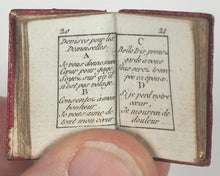 20
Devises pour les
Demoiselles.
A
Je vous donne mon
Cœur pour gage
Soyez sur qu'il
n'est pas volage
B
Consentez à mon
bonheur.
Je vous aime de
tout mon cœur
21
C
Belle Iris prenez
garde à vous
Vous serez bientot
prise
D
Si je perd votre
cœur.
Je mourrai de
douleur.